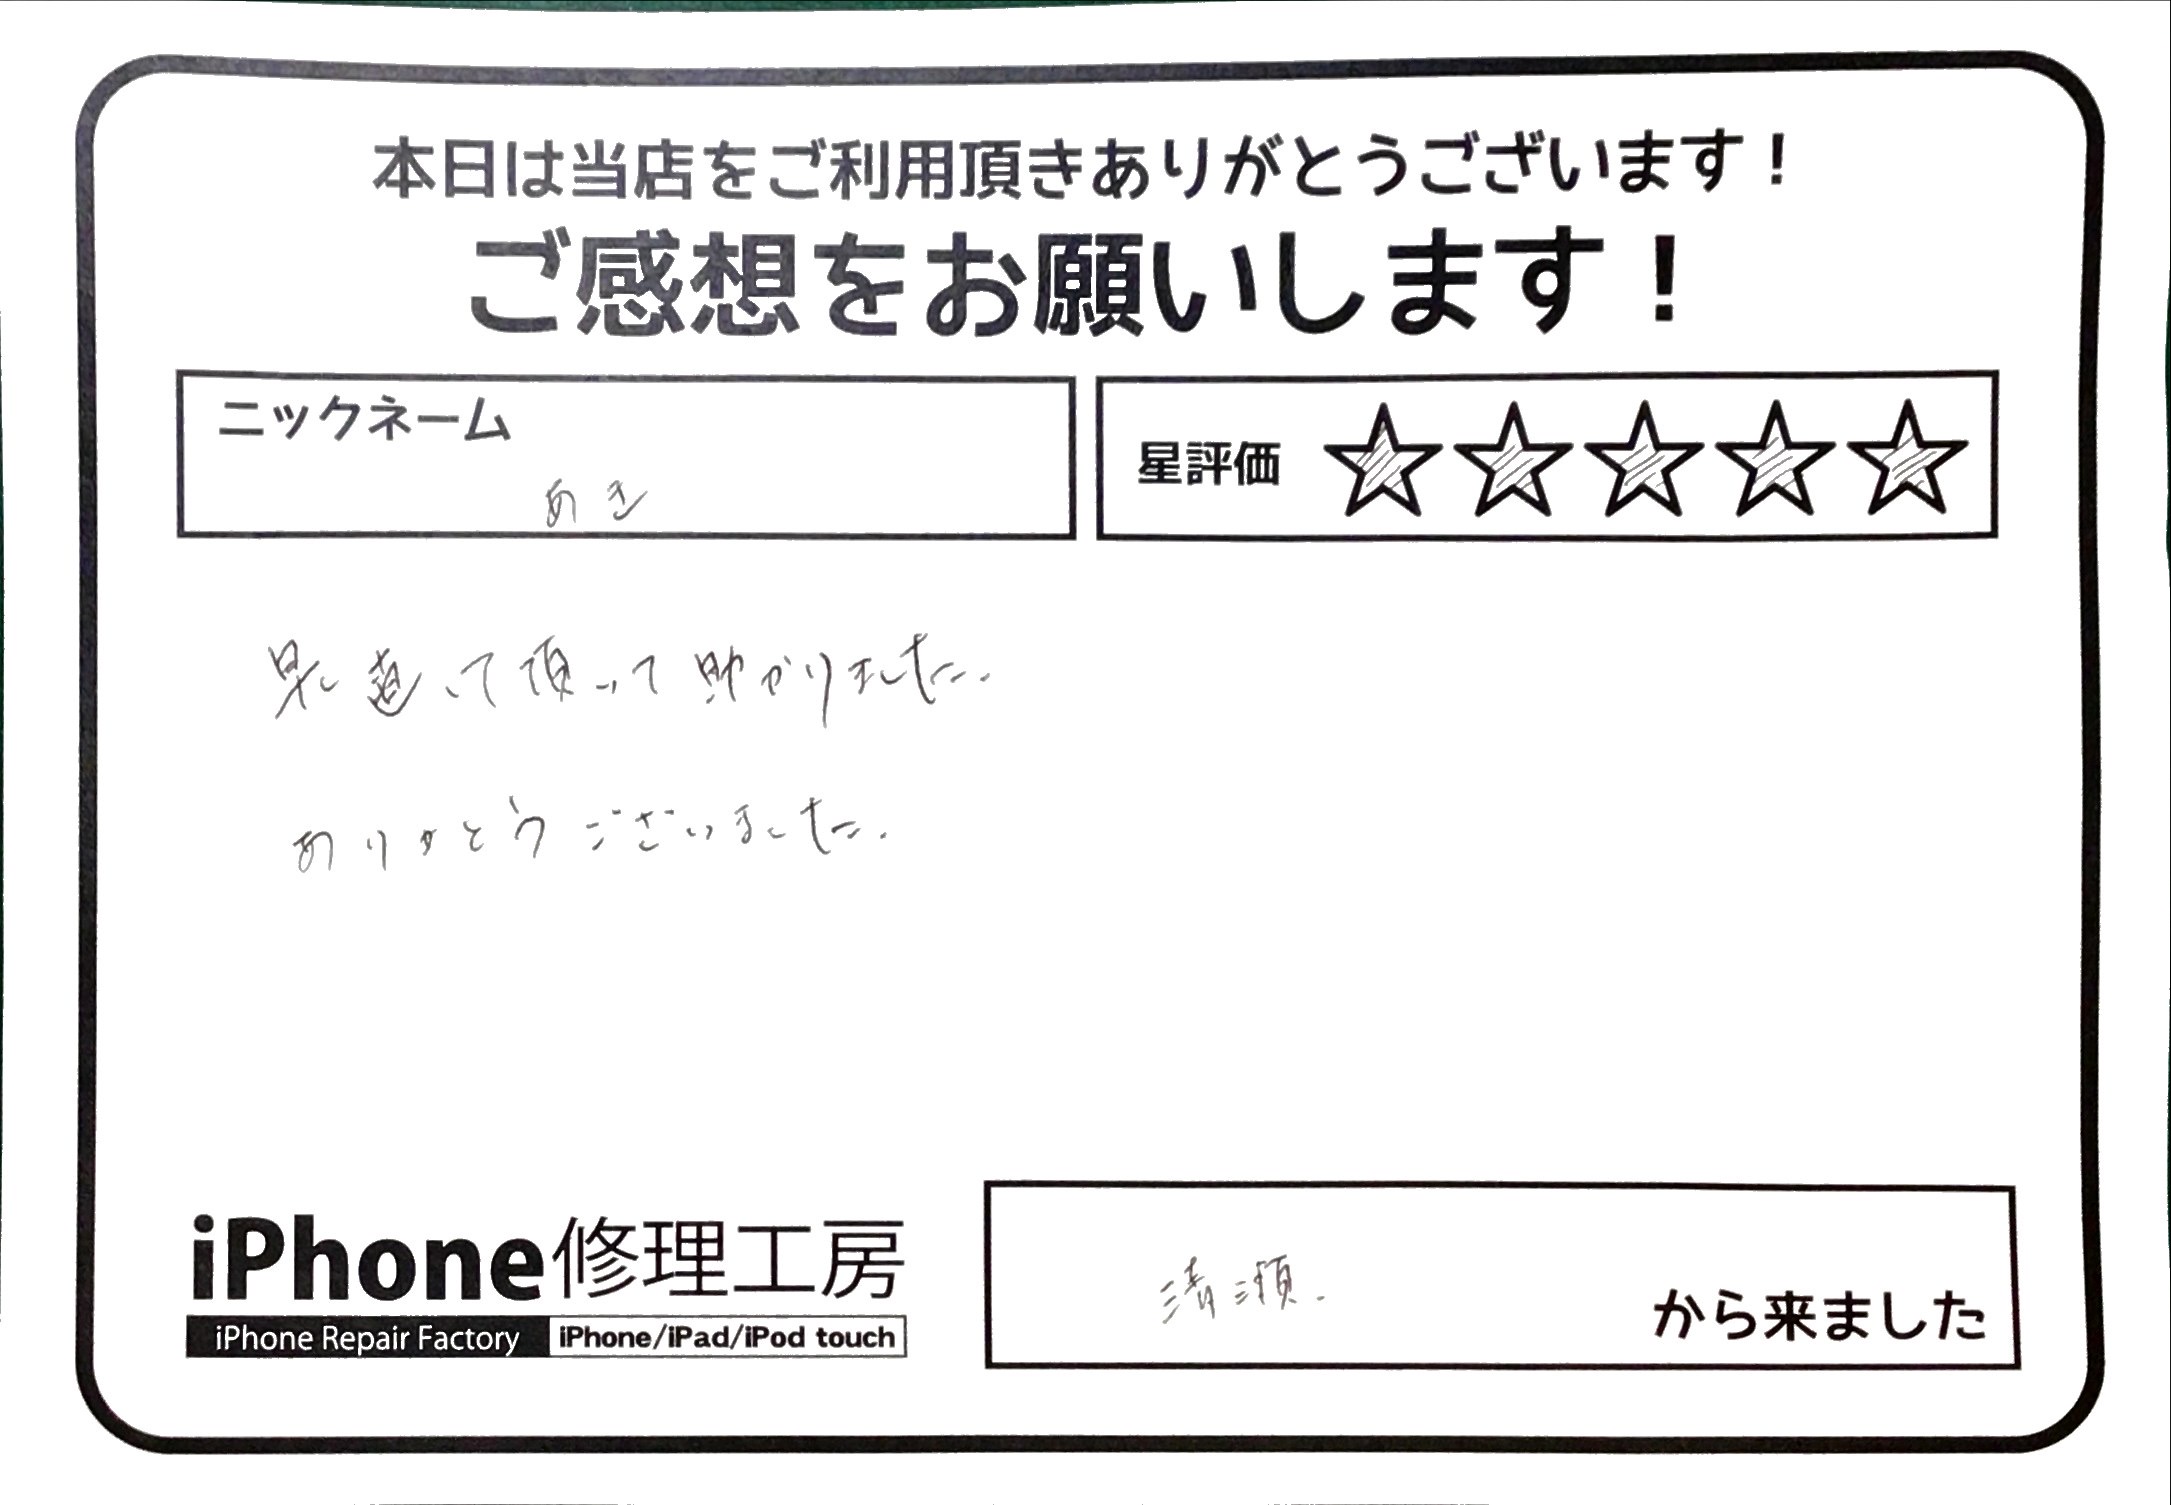 本日は当店をご利用頂きありがとうございます！
ご感想をお願いします！
ニックネーム
あき
星評価 ☆☆☆☆☆
早く直して頂いて助かりました.
ありがとうございました.
iPhone修理工房
iPhone Repair Factory iPhone/iPad/iPod touch
清瀬. から来ました